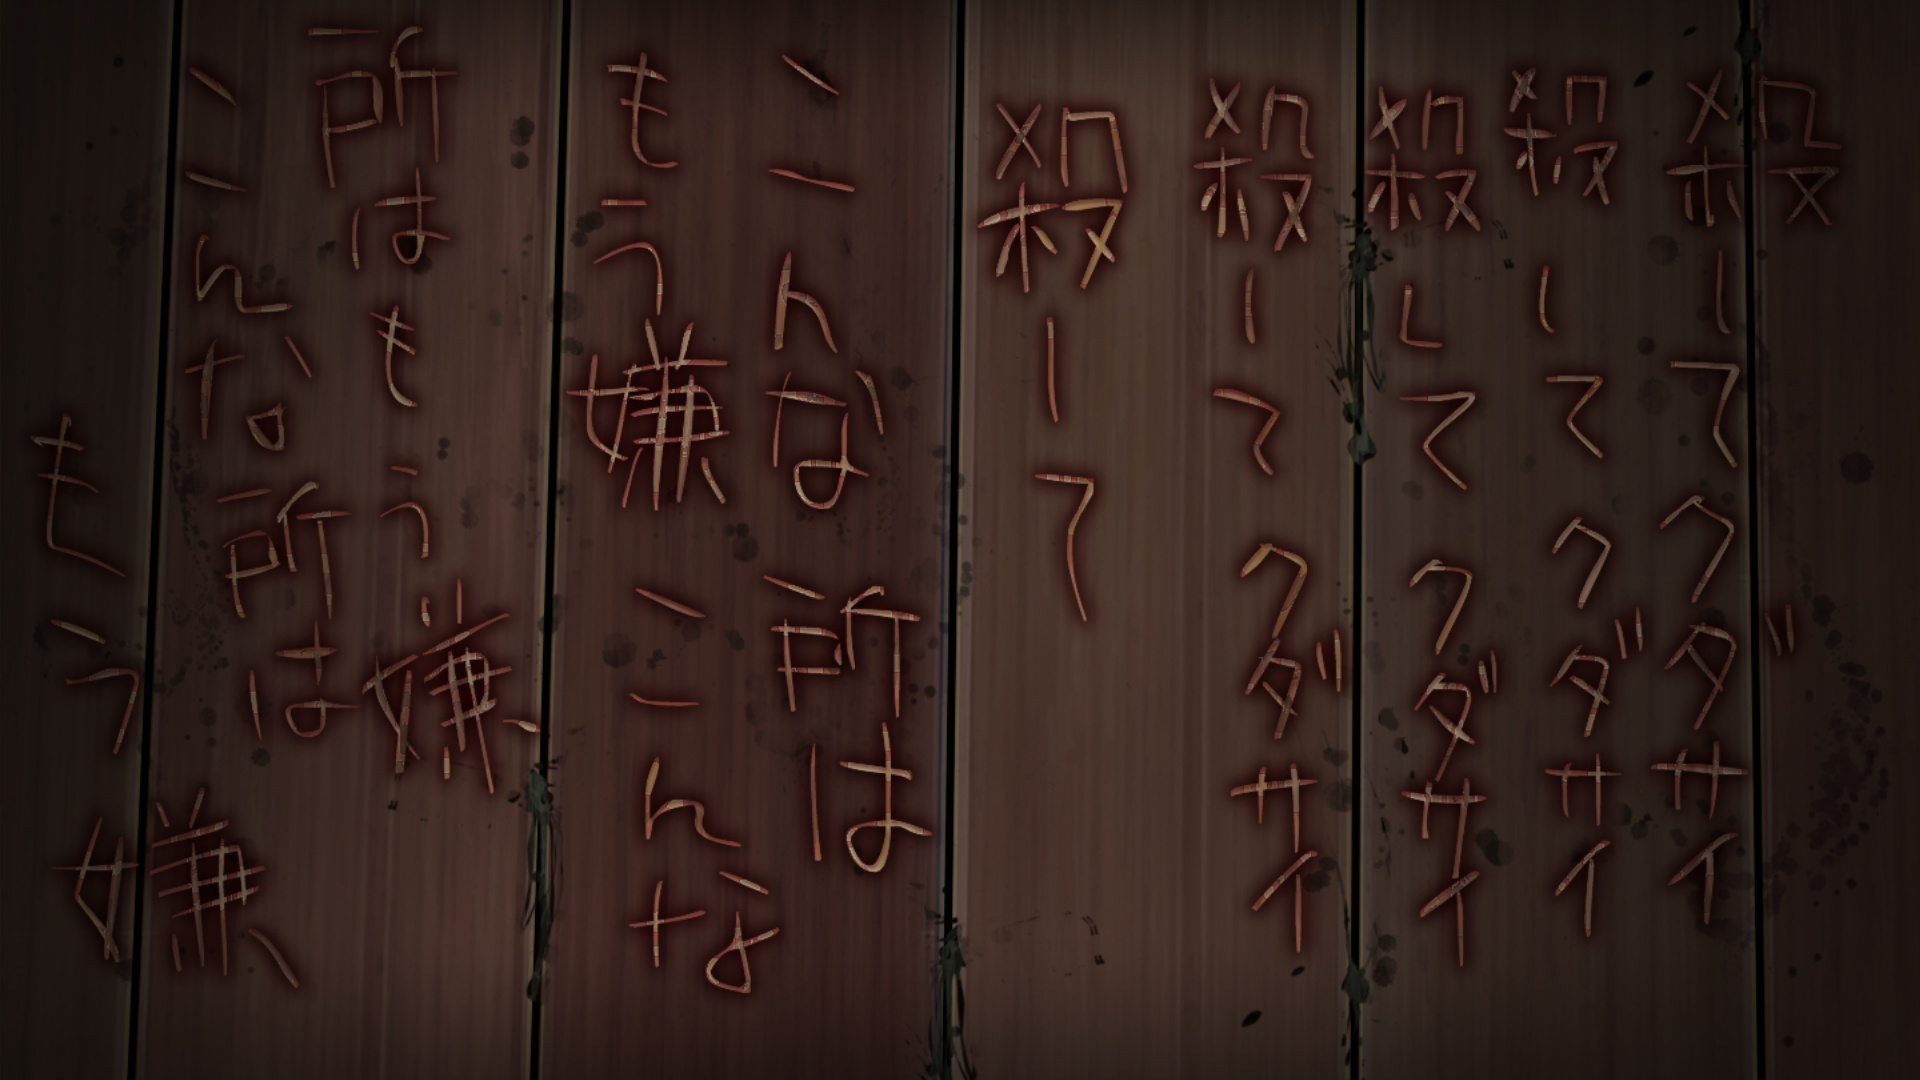 殺してクダサイ
殺してクダサイ
殺してクダサイ
殺してクダサイ
殺して
こんな所は
もう嫌こんな
所はもう嫌
こんな所は
もう嫌